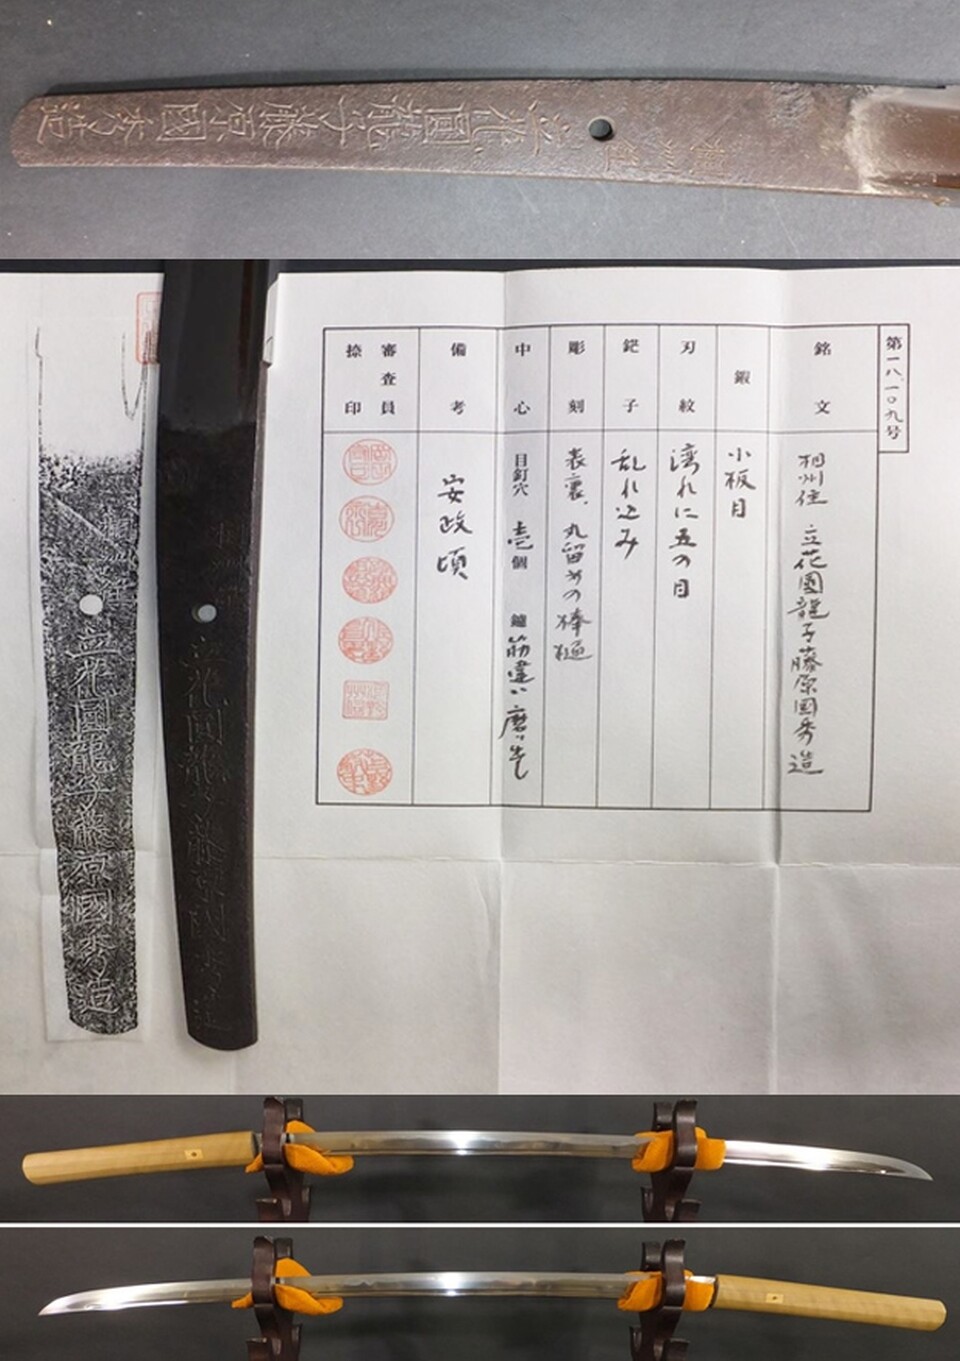 相州住
立花圓龍子藤原國秀造
第一八一〇九号
銘文
相州住 立花圓龍子藤原国秀造
鍛
小板目
刃紋
湾れに五の目
鋩子
乱れ込み
彫刻
表裏、丸留めの棒樋
中心
目釘穴 壱個 鑢 筋違い 磨り出し
備考
安政頃
審査員
捺印
相州住
立花圓龍子藤原國秀造